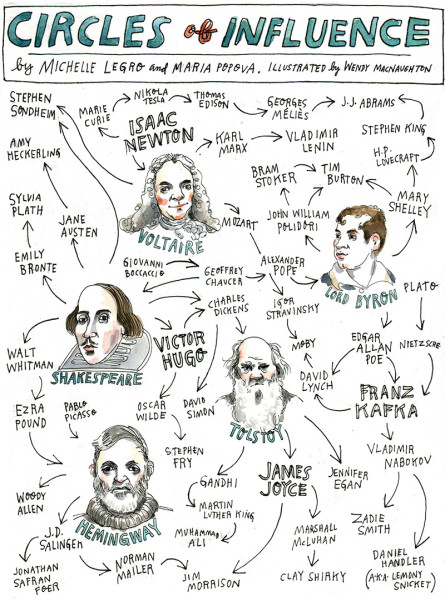 CIRCLES of INFLUENCE
by MICHELLE LEGRO AND MARIA POPOVA. ILLUSTRATED by WENDY MACNAUGHTON
STEPHEN
SONDHEIM
MARIE
CURIE
NIKOLA
TESLA
THOMAS
EDISON
GEORGES
MÉLIÈS
J.J. ABRAMS
ISAAC
NEWTON
KARL
MARX
VLADIMIR
LENIN
STEPHEN KING
AMY
HECKERLING
H.P.
LOVECRAFT
BRAM
STOKER
TIM
BURTON
SYLVIA
PLATH
JANE
AUSTEN
VOLTAIRE
MOZART
JOHN WILLIAM
POLIDORI
MARY
SHELLEY
EMILY
BRONTE
GIOVANNI
BOCCACCIO
GEOFFREY
CHAUCER
ALEXANDER
POPE
LORD BYRON
PLATO
CHARLES
DICKENS
IGOR
STRAVINSKY
VICTOR
HUGO
MOBY
EDGAR
ALLAN
POE
NIETZSCHE
WALT
WHITMAN
SHAKESPEARE
DAVID
LYNCH
FRANZ
KAFKA
EZRA
POUND
PABLO
PICASSO
OSCAR
WILDE
DAVID
SIMON
TOLSTOY
STEPHEN
FRY
VLADIMIR
NABOKOV
WOODY
ALLEN
HEMINGWAY
GANDHI
JAMES
JOYCE
JENNIFER
EGAN
MARTIN
LUTHER KING
ZADIE
SMITH
J.D.
SALINGER
MUHAMMAD
ALI
MARSHALL
McLUHAN
DANIEL
HANDLER
(A.K.A. LEMONY
SNICKET)
JONATHAN
SAFRAN
FOER
NORMAN
MAILER
JIM
MORRISON
CLAY SHIRKY